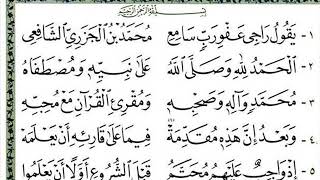 بِسْمِ اللَّهِ الرَّحْمَٰنِ الرَّحِيمِ
١ - يَقُولُ رَاجِي عَفْوِ رَبٍّ سَامِعِ مُحَمَّدُ بْنُ الْجَزَرِيِّ الشَّافِعِي
٢ - الْحَمْدُ لِلَّهِ وَصَلَّى اللَّهُ عَلَى نَبِيِّهِ وَمُصْطَفَاهُ
٣ - مُحَمَّدٍ وَآلِهِ وَصَحْبِهِ وَمُقْرِئِ الْقُرْآنِ مَعْ مُحِبِّهِ
٤ - وَبَعْدُ إِنَّ هَذِهِ مُقَدِّمَهْ فِيمَا عَلَى قَارِئِهِ أَنْ يَعْلَمَهْ
٥ - إِذْ وَاجِبٌ عَلَيْهِمُ مُحَتَّمُ قَبْلَ الشُّرُوعِ أَوَّلًا أَنْ يَعْلَمُوا